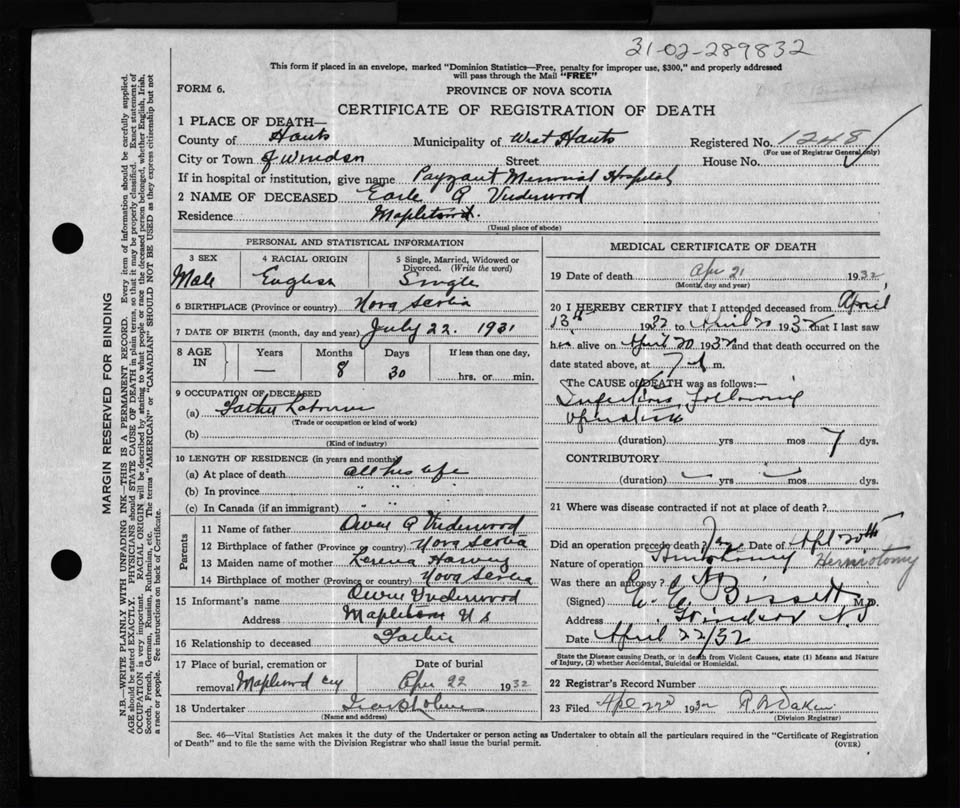 31-02-289832
This form if placed in an envelope, marked "Dominion Statistics—Free, penalty for improper use, $300," and properly addressed
will pass through the Mail "FREE"
FORM 6.
PROVINCE OF NOVA SCOTIA
CERTIFICATE OF REGISTRATION OF DEATH
1 PLACE OF DEATH—
County of Hants Municipality of West Hants Registered No. 1248
(For use of Registrar General only)
City or Town of Windsor Street House No.
If in hospital or institution, give name Payzant Memorial Hospital
2 NAME OF DECEASED Earle A Underwood
Residence
(Usual place of abode)
PERSONAL AND STATISTICAL INFORMATION
3 SEX 4 RACIAL ORIGIN 5 Single, Married, Widowed or Divorced. (Write the word)
Male English Single
6 BIRTHPLACE (Province or country) Nova Scotia
7 DATE OF BIRTH (month, day and year) July 22. 1931
8 AGE IN Years Months Days If less than one day,
— 8 30 hrs. or min.
9 OCCUPATION OF DECEASED
(a)
(Trade or occupation or kind of work)
(b)
(Kind of industry)
10 LENGTH OF RESIDENCE (in years and months)
(a) At place of death all his life
(b) In province " " "
(c) In Canada (if an immigrant) " " "
Parents
11 Name of father Owen A Underwood
12 Birthplace of father (Province or country) Nova Scotia
13 Maiden name of mother
14 Birthplace of mother (Province or country) Nova Scotia
15 Informant's name Owen Underwood
Address
16 Relationship to deceased Father
17 Place of burial, cremation or removal Date of burial
22 1932
18 Undertaker
(Name and address)
MEDICAL CERTIFICATE OF DEATH
19 Date of death Apr 21 1932
(Month, day and year)
20 I HEREBY CERTIFY that I attended deceased from April
13th 1932 to April 20 1932 that I last saw
him alive on April 20 1932 and that death occurred on the
date stated above, at 7 m.
The CAUSE OF DEATH was as follows:—
Infection following
operation
(duration) yrs mos 7 dys.
CONTRIBUTORY
(duration) yrs mos dys.
21 Where was disease contracted if not at place of death?
Did an operation precede death? Date of
Nature of operation Herniotomy
Was there an autopsy? No
(Signed) Bissett M.D.
Address Windsor N.S
Date April 22/32
State the Disease causing Death, or in death from Violent Causes, state (1) Means and Nature
of Injury, (2) whether Accidental, Suicidal or Homicidal.
22 Registrar's Record Number
23 Filed 1932
(Division Registrar)
Sec. 46—Vital Statistics Act makes it the duty of the Undertaker or person acting as Undertaker to obtain all the particulars required in the "Certificate of Registration
of Death" and to file the same with the Division Registrar who shall issue the burial permit.
(OVER)
MARGIN RESERVED FOR BINDING
N.B.—WRITE PLAINLY WITH UNFADING INK—THIS IS A PERMANENT RECORD. Every item of information should be carefully supplied.
AGE should be stated EXACTLY. PHYSICIANS should STATE CAUSE OF DEATH in plain terms, so that it may be properly classified. Exact statement of
OCCUPATION is very important. RACIAL ORIGIN will be described by stating to what people or race the deceased person belonged, whether English, Irish,
Scotch, French, German, Russian, Ruthenian, etc. The terms "AMERICAN" or "CANADIAN" SHOULD NOT BE USED as they express citizenship but not
a race or people. See instructions on back of Certificate.